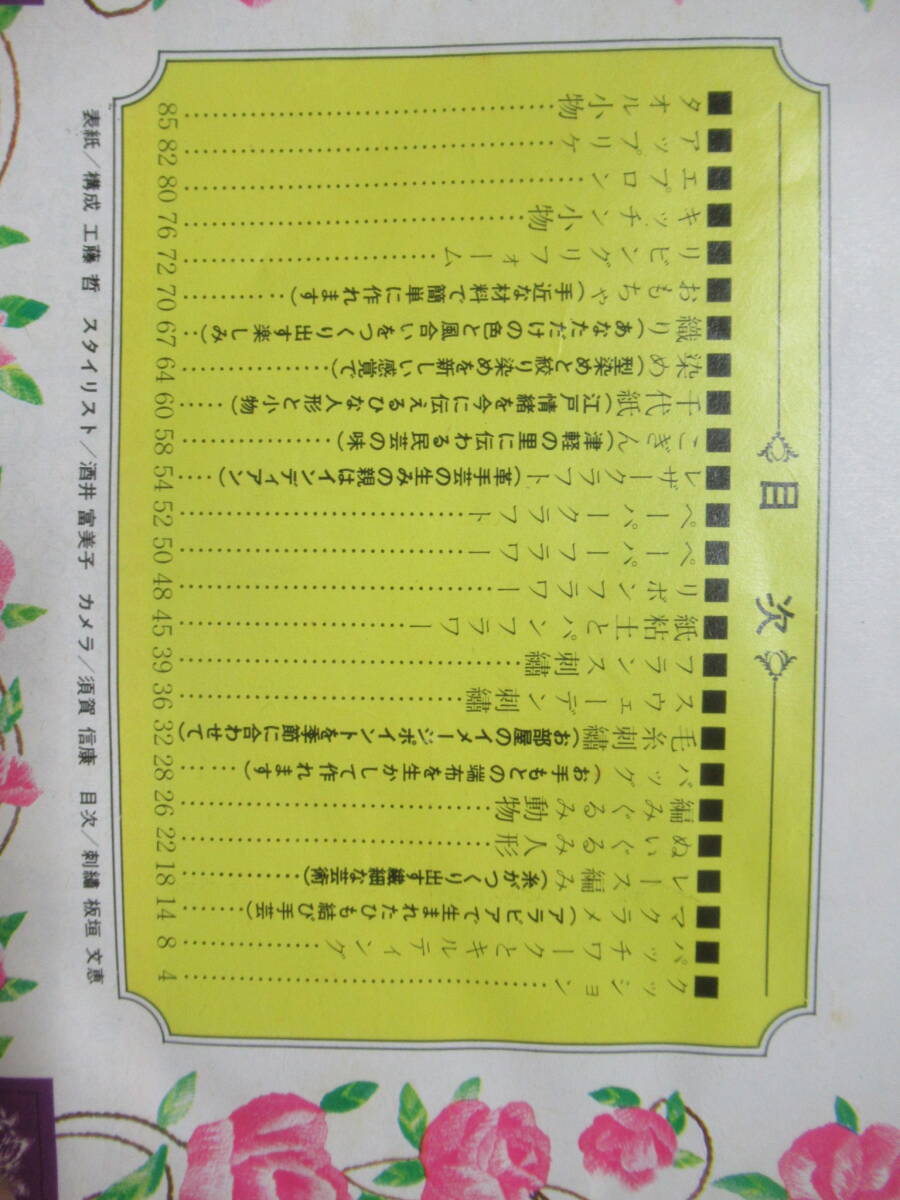 目次
■クッション……4
■パッチワークとキルティング……8
■マクラメ(アラビアで生まれたひも結び手芸)……14
■レース編み(糸がつくり出す繊細な芸術)……18
■ぬいぐるみ人形……22
■編みぐるみ動物……26
■バッグ(お手もとの端布を生かして作れます)……28
■毛糸刺繡(お部屋のイメージポイントを季節に合わせて)32
■スウェーデン刺繡……36
■フランス刺繡……39
■紙粘土とパンフラワー……45
■リボンフラワー……48
■ペーパーフラワー……50
■ペーパークラフト……52
■レザークラフト(革手芸の生みの親はインディアン)……54
■こぎん(津軽の里に伝わる民芸の味)……58
■千代紙(江戸情緒を今に伝えるひな人形と小物)……60
■染め(型染めと絞り染めを新しい感覚で)……64
■織り(あなただけの色と風合いをつくり出す楽しみ)……67
■おもちゃ(手近な材料で簡単に作れます)……70
■リビングリフォーム……72
■キッチン小物……76
■エプロン……80
■アップリケ……82
■タオル小物……85
表紙/構成 工藤 哲 スタイリスト/酒井 富美子 カメラ/須賀 信康 目次/刺繡 板垣 文恵